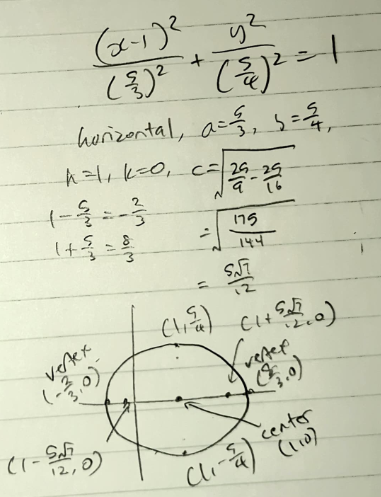 (x-1)²/(5/3)² + y²/(5/4)² = 1
horizontal, a=5/3, b=5/4,
h=1, k=0, c=√(25/9 - 25/16)
1-5/3=-2/3
1+5/3=8/3
=√(175/144)
=5√7/12
(1,5/4)
(1+5√7/12,0)
vertex
(-2/3,0)
vertex
(8/3,0)
center
(1,0)
(1-5√7/12,0)
(1,-5/4)